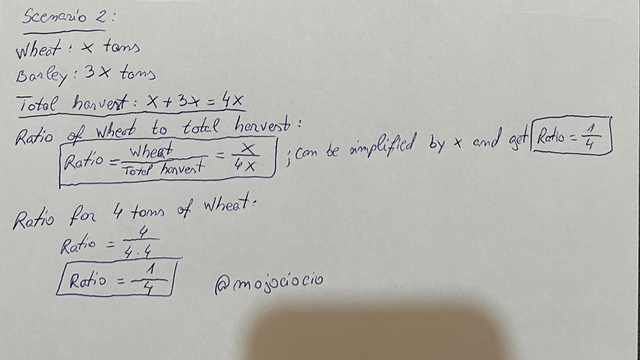 Scenario 2:
Wheat: x tons
Barley: 3x tons
Total harvest: x + 3x = 4x
Ratio of wheat to total harvest:
Ratio = Wheat / Total harvest = x / 4x ; can be simplified by x and get Ratio = 1/4
Ratio for 4 tons of wheat:
Ratio = 4 / 4·4
Ratio = 1/4
@mojociocio